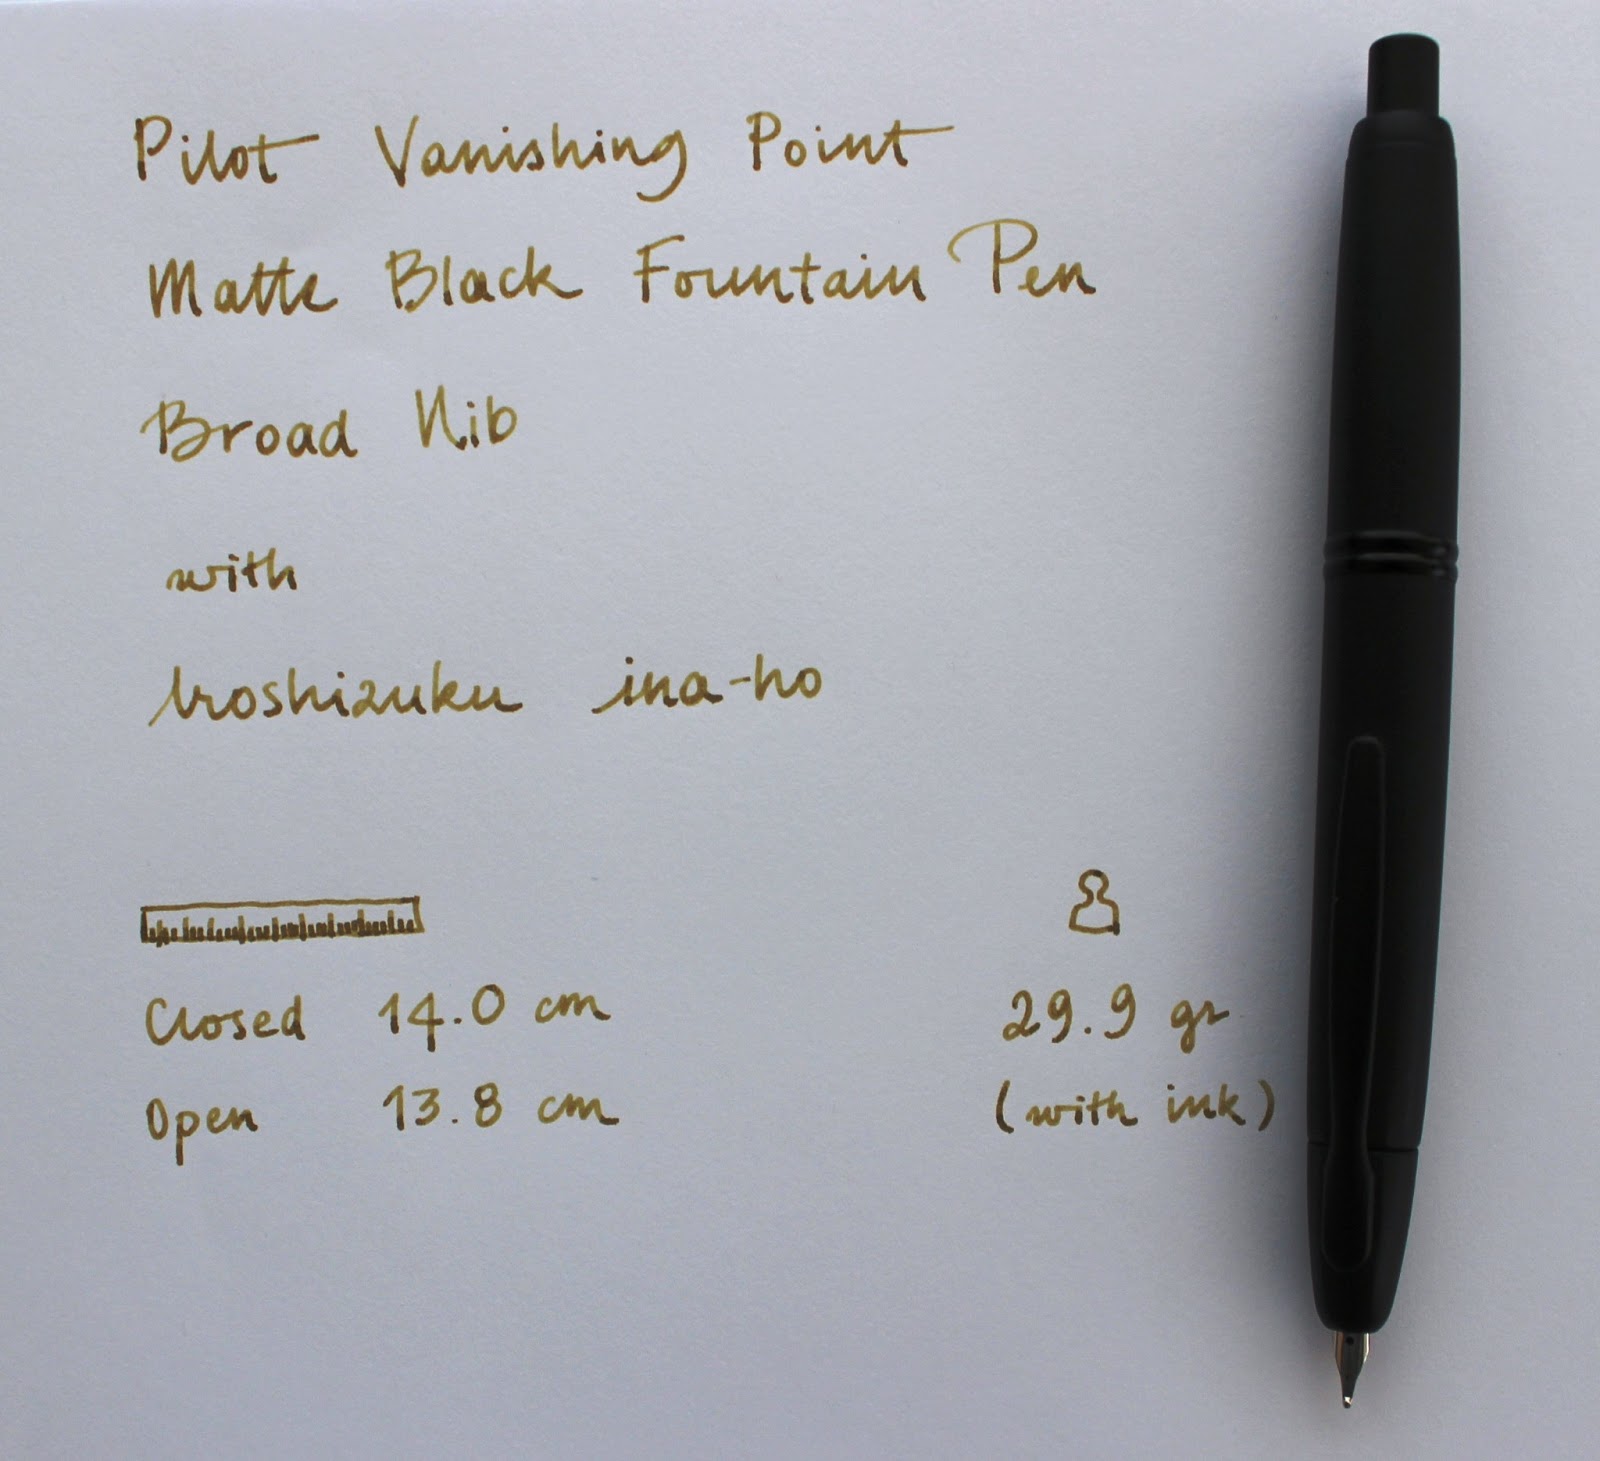 Pilot Vanishing Point
Matte Black Fountain Pen
Broad Nib
with
Iroshizuku ina-ho
Closed 14.0 cm
29.9 gr
Open 13.8 cm
(with ink)